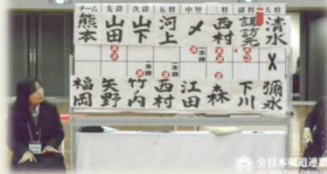 チーム 先鋒 次鋒 五将 中 三将 副将 大将
熊本 山田 山下 河上 〆 西村 諏訪元 清水
福岡 矢野 竹内 西村 江田 森 下川 彌永
全日本剣道連盟